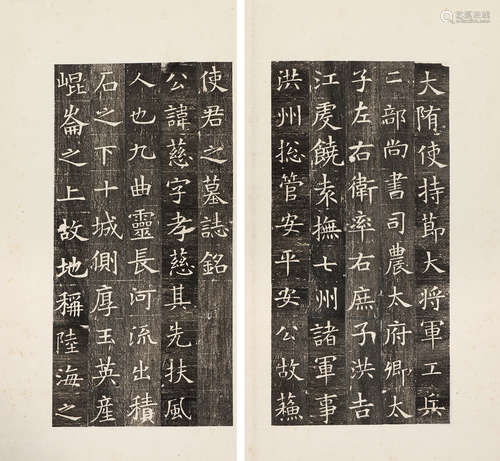 大隋使持節大將軍工兵
二部尚書司農太府卿太
子左右衛率右庶子洪吉
江虔饒袁撫七州諸軍事
洪州総管安平安公故蘓
使君之墓誌銘
公諱慈字孝慈其先扶風
人也九曲靈長河流出積
石之下十城側厚玉英產
崐崙之上故地稱陸海之